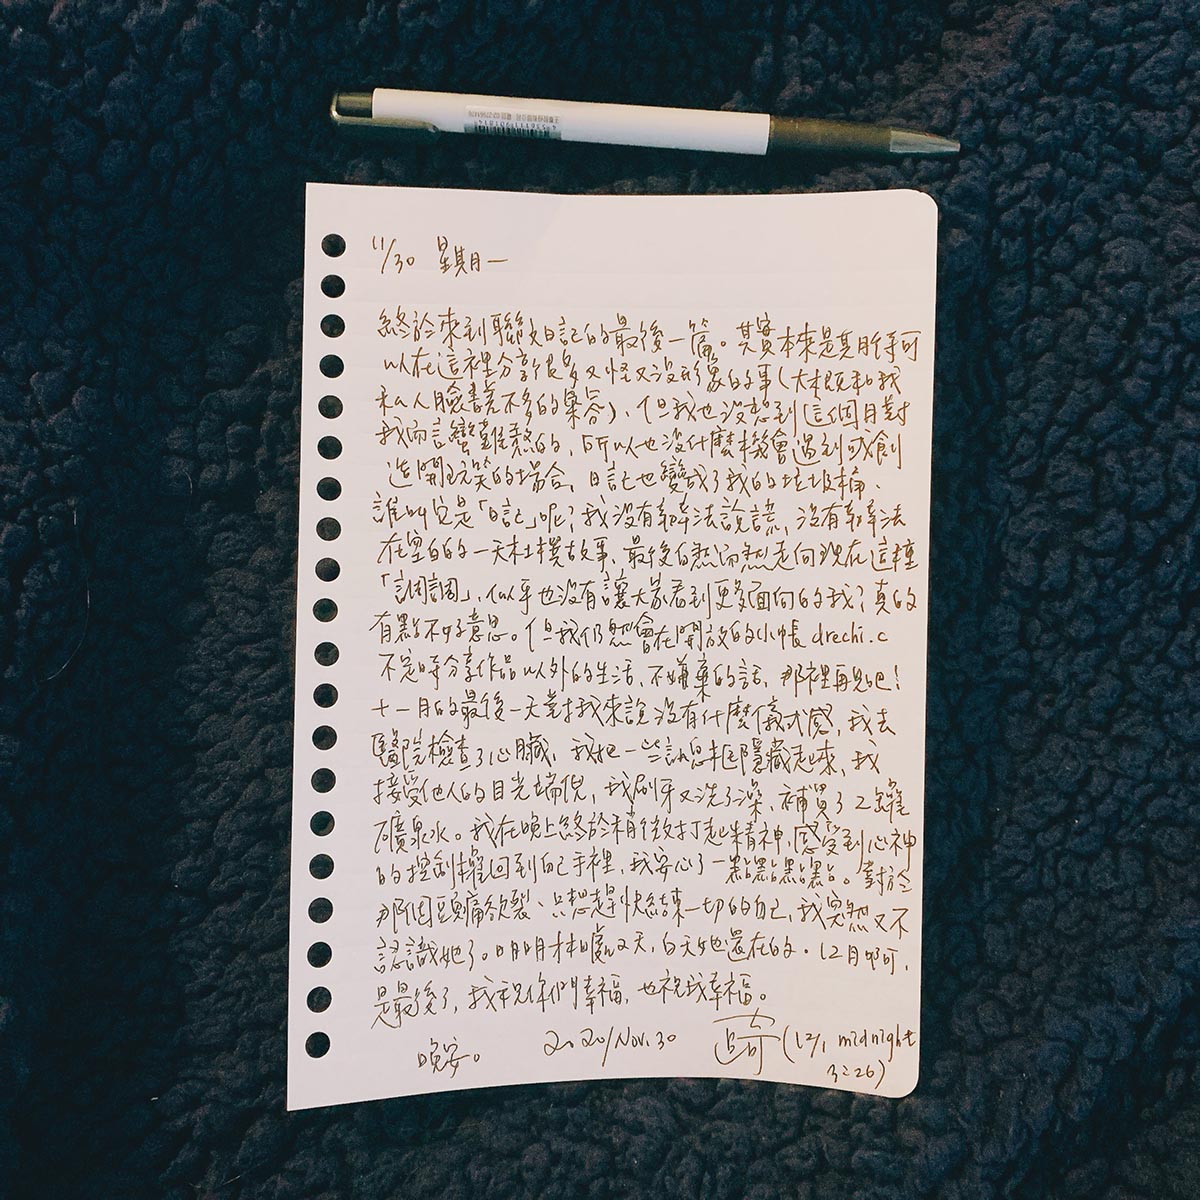 11/30 星期一
終於來到聯文日記的最後一篇。其實本來是期待可
以在這裡分享很多又怪又沒形象的事(大概和我
私人臉書差不多的集合),但我也沒想到這個月對
我而言蠻難熬的,所以也沒什麼機會遇到或創
造開玩笑的場合,日記也變成了我的垃圾桶、
誰叫它是「日記」呢?我沒有辦法說謊,沒有辦法
在空白的一天杜撰故事、最後自然而然走向現在這種
「調調」,似乎也沒有讓大家看到更多面向的我?真的
有點不好意思。但我仍然會在開放的小帳drechi.c
不定時分享作品以外的生活,不嫌棄的話,那裡再見吧!
十一月的最後一天對我來說沒有什麼儀式感,我去
醫院檢查了心臟,我把一些訊息框隱藏起來,我
接受他人的目光端倪,我刷牙又洗了澡,補買了2罐
礦泉水。我在晚上終於稍微打起精神,感受到心神
的控制權回到自己手裡,我安心了一點點點點。對於
那個頭痛欲裂、只想趕快結束一切的自己,我突然又不
認識她了。明明才相處2天,白天她還在的。12月啊,
是最後了,我祝你們幸福,也祝我幸福。
晚安。 2020/Nov.30 (12/1 midnight
3:26)
4536111901814